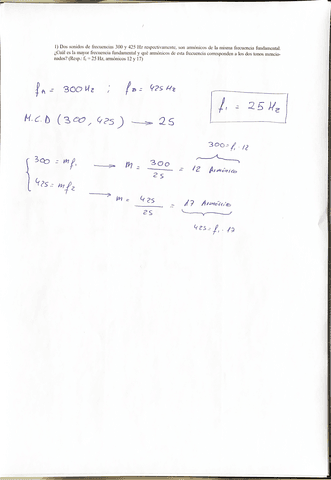 1) Dos sonidos de frecuencias 300 y 425 Hz respectivamente, son armónicos de la misma frecuencia fundamental.
¿Cuál es la mayor frecuencia fundamental y qué armónicos de esta frecuencia corresponden a los dos tonos mencio-
nados? (Resp.: f₁ = 25 Hz, armónicos 12 y 17)
fn = 300 Hz ; fm = 425 Hz
f₁ = 25 Hz
M.C.D (300, 425) → 25
300 = f₁ · 12
300 = m f₁ → m = 300/25 = 12 Armónico
425 = m f₂ → m = 425/25 = 17 Armónico
425 = f₁ · 17